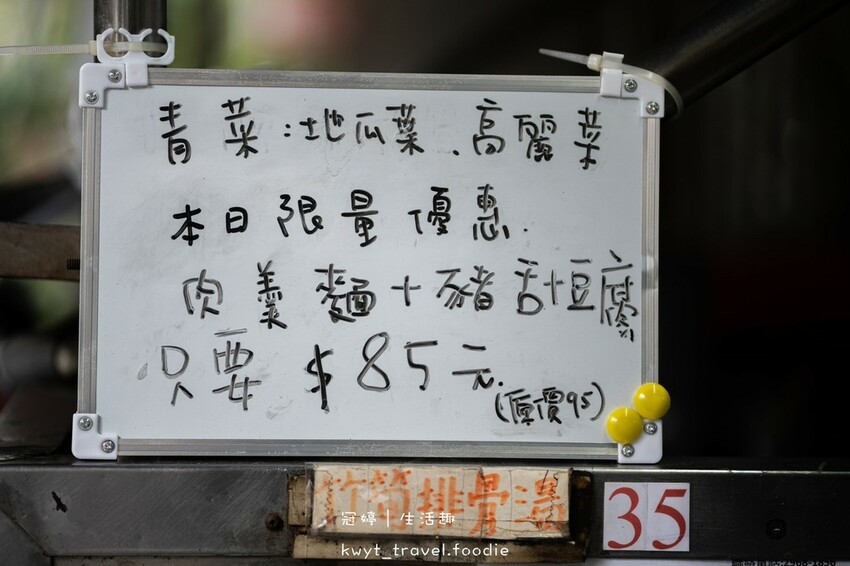 青菜:地瓜葉.高麗菜
本日限量優惠.
肉羹麵+豬舌+豆腐
只要$85元.
(原價95)
竹筍排骨湯
35
冠婷|生活趣
kwyt_travel.foodie